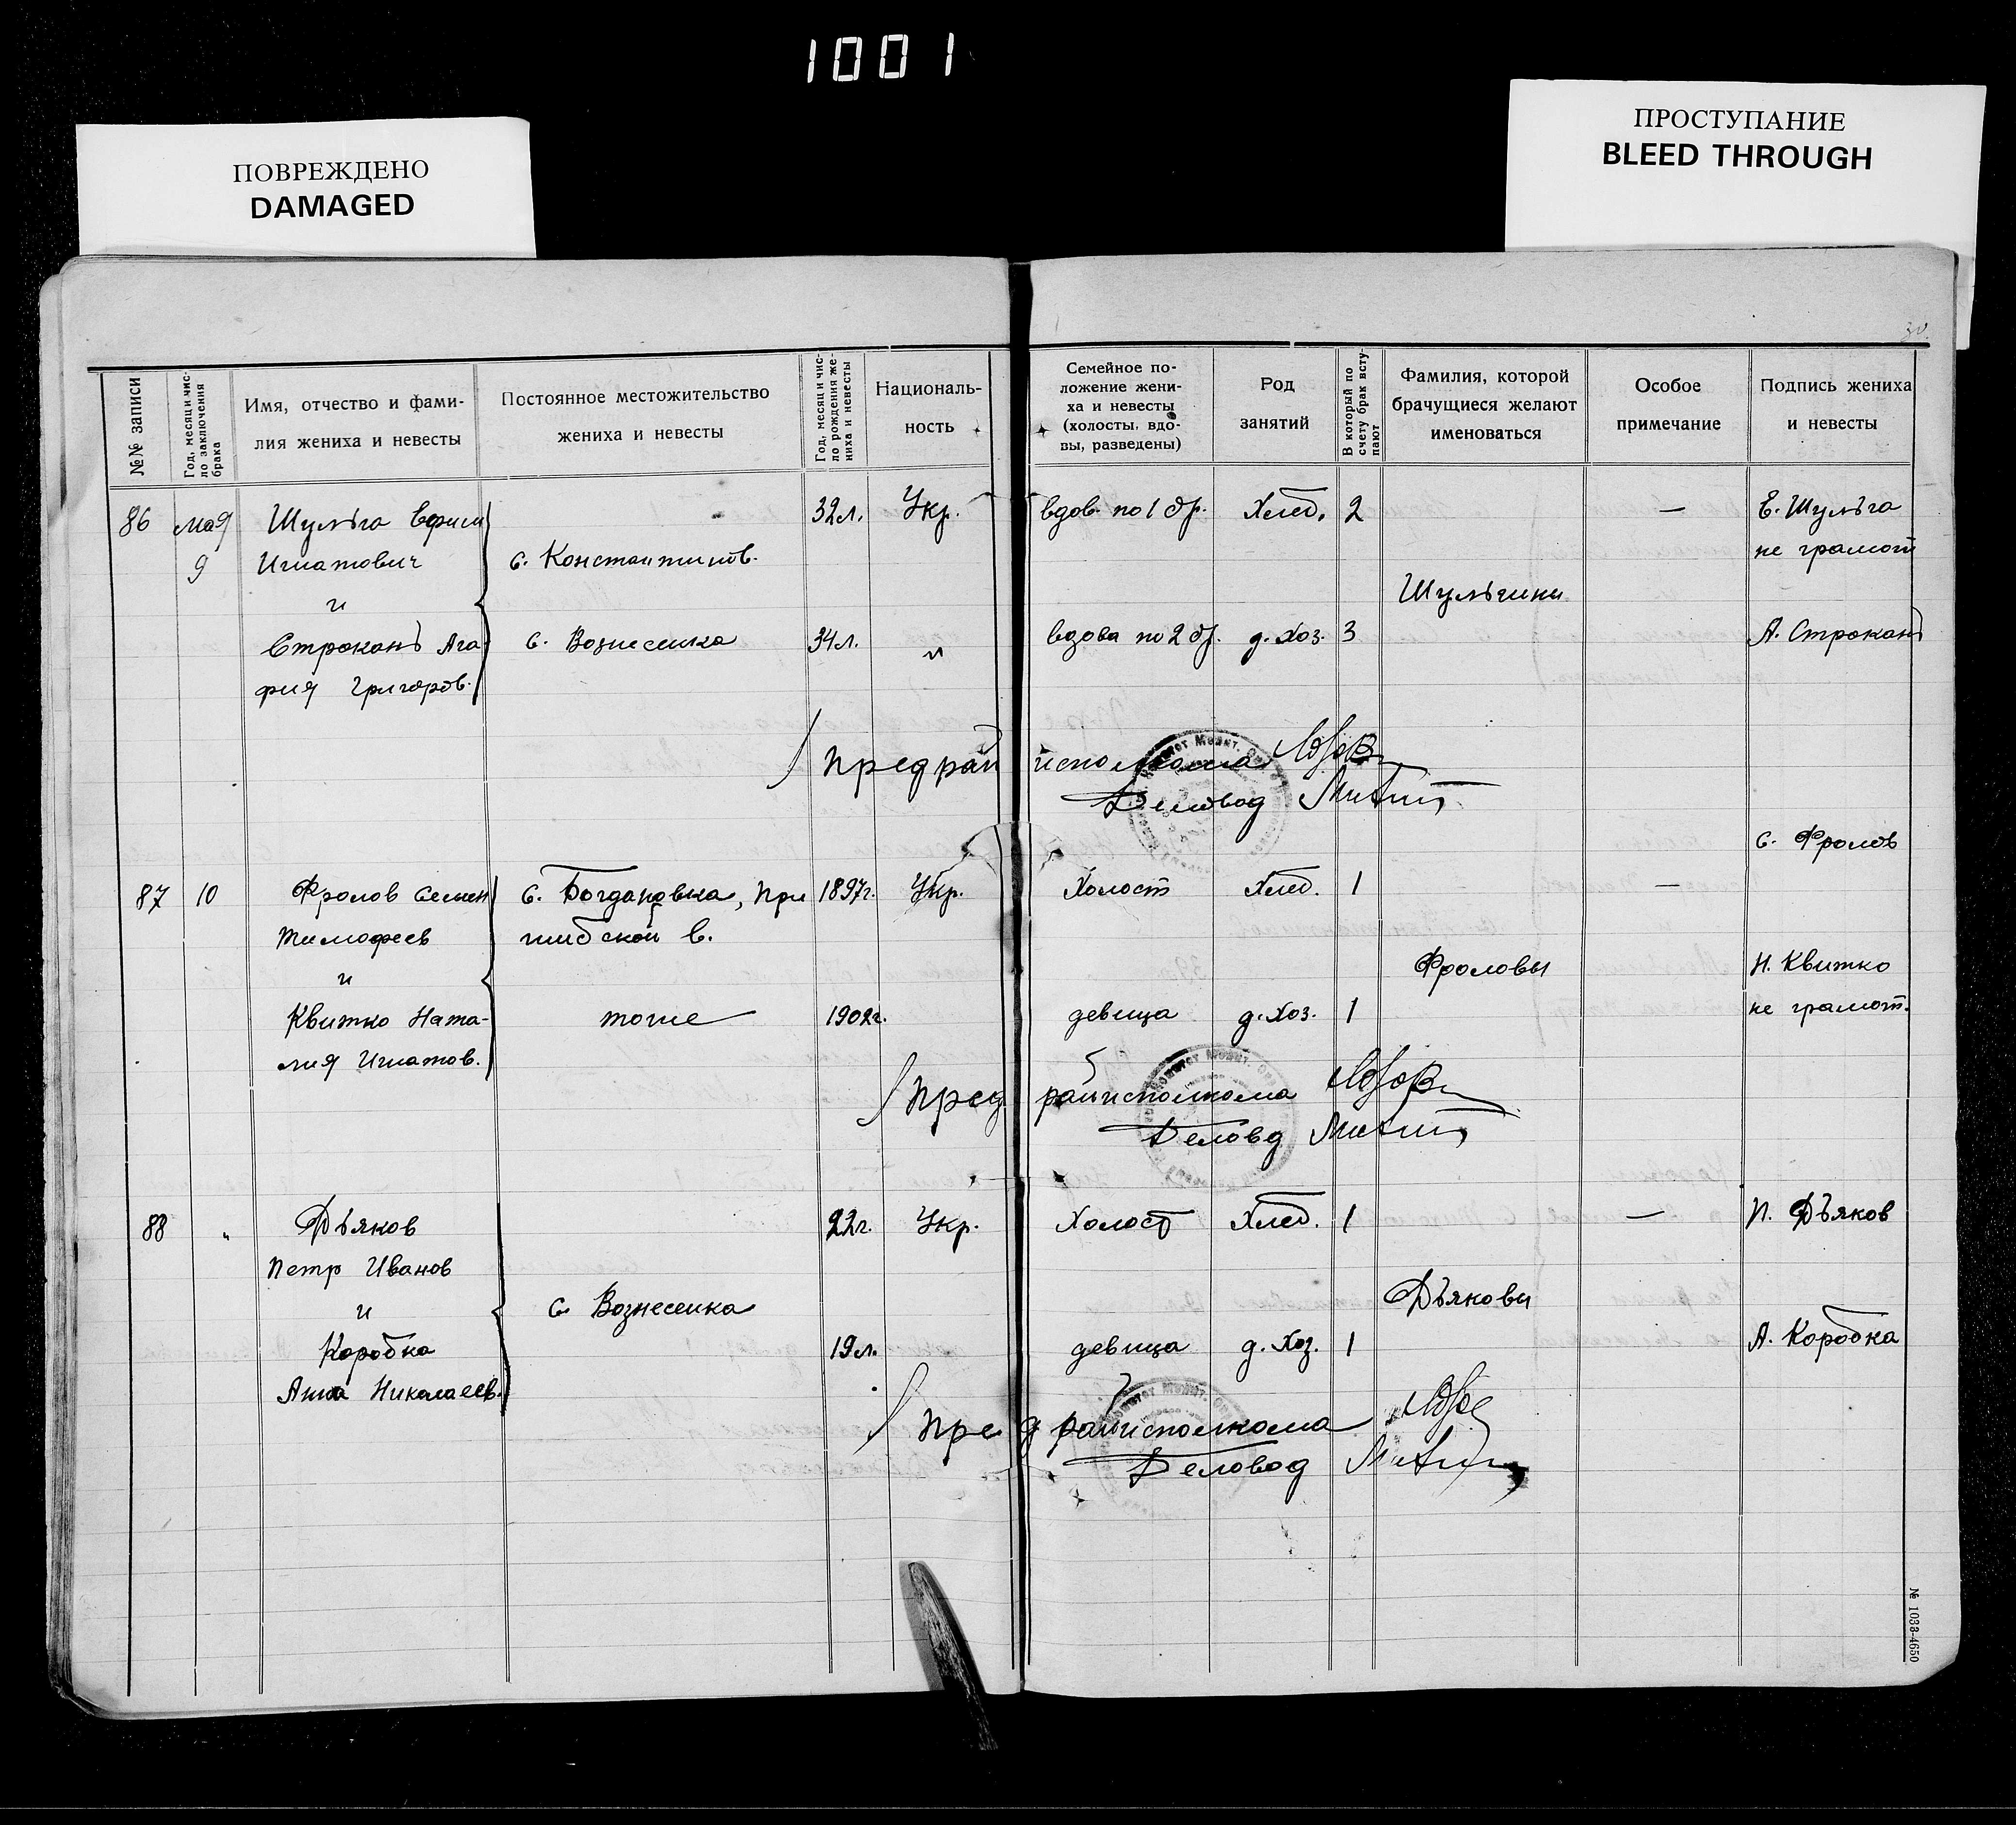 1001
ПОВРЕЖДЕНО
DAMAGED
ПРОСТУПАНИЕ
BLEED THROUGH
30.
№№ записи
Год, месяц и чис-
ло заключения
брака
Имя, отчество и фами-
лия жениха и невесты
Постоянное местожительство
жениха и невесты
Год, месяц и чис-
ло рождения же-
ниха и невесты
Националь-
ность
Семейное по-
ложение жени-
ха и невесты
(холосты, вдо-
вы, разведены)
Род
занятий
В который по
счету брак всту-
пают
Фамилия, которой
брачущиеся желают
именоваться
Особое
примечание
Подпись жениха
и невесты
86 мая Шульга Ефим 32л. Укр. вдов. по 1 бр. Хлеб. 2 — Е. Шульга
9 Игнатович с. Константинов. не грамот
и Шульгини
Строкань Ага- с. Вознесенка 34л. " вдова по 2 бр. д. Хоз. 3 А. Строкань
фия Григоров.
Пред райисполкома
Деловод
с. Фролов
87 10 Фролов Семен с. Богдановка, При 1897г. Укр. Холост Хлеб. 1 —
Тимофеев шибской в.
и Фроловы Н. Квитко
Квитко Ната- тоже 1902г. девица д. Хоз. 1 не грамот.
лия Игнатов.
Пред. райисполкома
Деловод
88 " Дъяков 22г. Укр. Холост Хлеб. 1 — П. Дъяков
Петр Иванов
и с. Вознесенка Дъяковы
Коробка 19л. девица д. Хоз. 1 А. Коробка
Анна Николаев.
Пред райисполкома
Деловод
№ 1033-4650